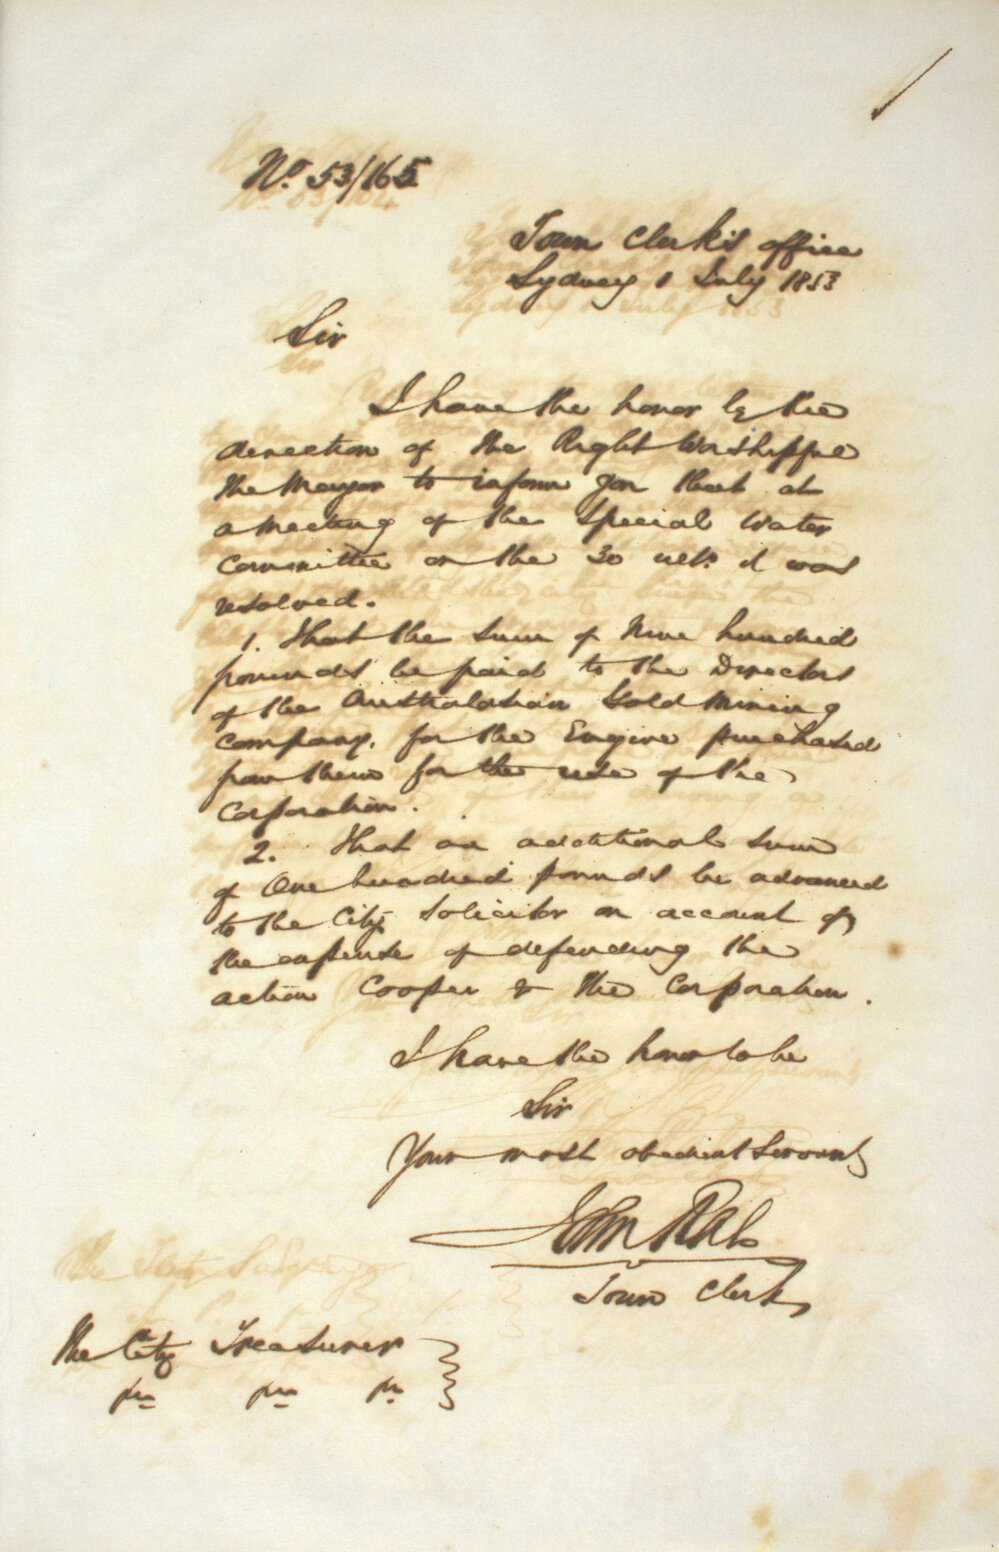 No. 53/165
Town Clerk's office
Sydney 1 July 1853
Sir
I have the honor by the
direction of the Right Worshipful
the Mayor to inform you that at
a meeting of the Special Water
Committee on the 30 ult. it was
resolved.
1. That the sum of Nine hundred
pounds be paid to the Directors
of the Australasian Gold Mining
Company, for the Engine purchased
from them for the use of the
Corporation.
2. That an additional sum
of One hundred pounds be advanced
to the City Solicitor on account of
the expense of defending the
action Cooper v the Corporation.
I have the honor to be
Sir
Your most obedient Servant
John Rae
Town Clerk
The City Treasurer